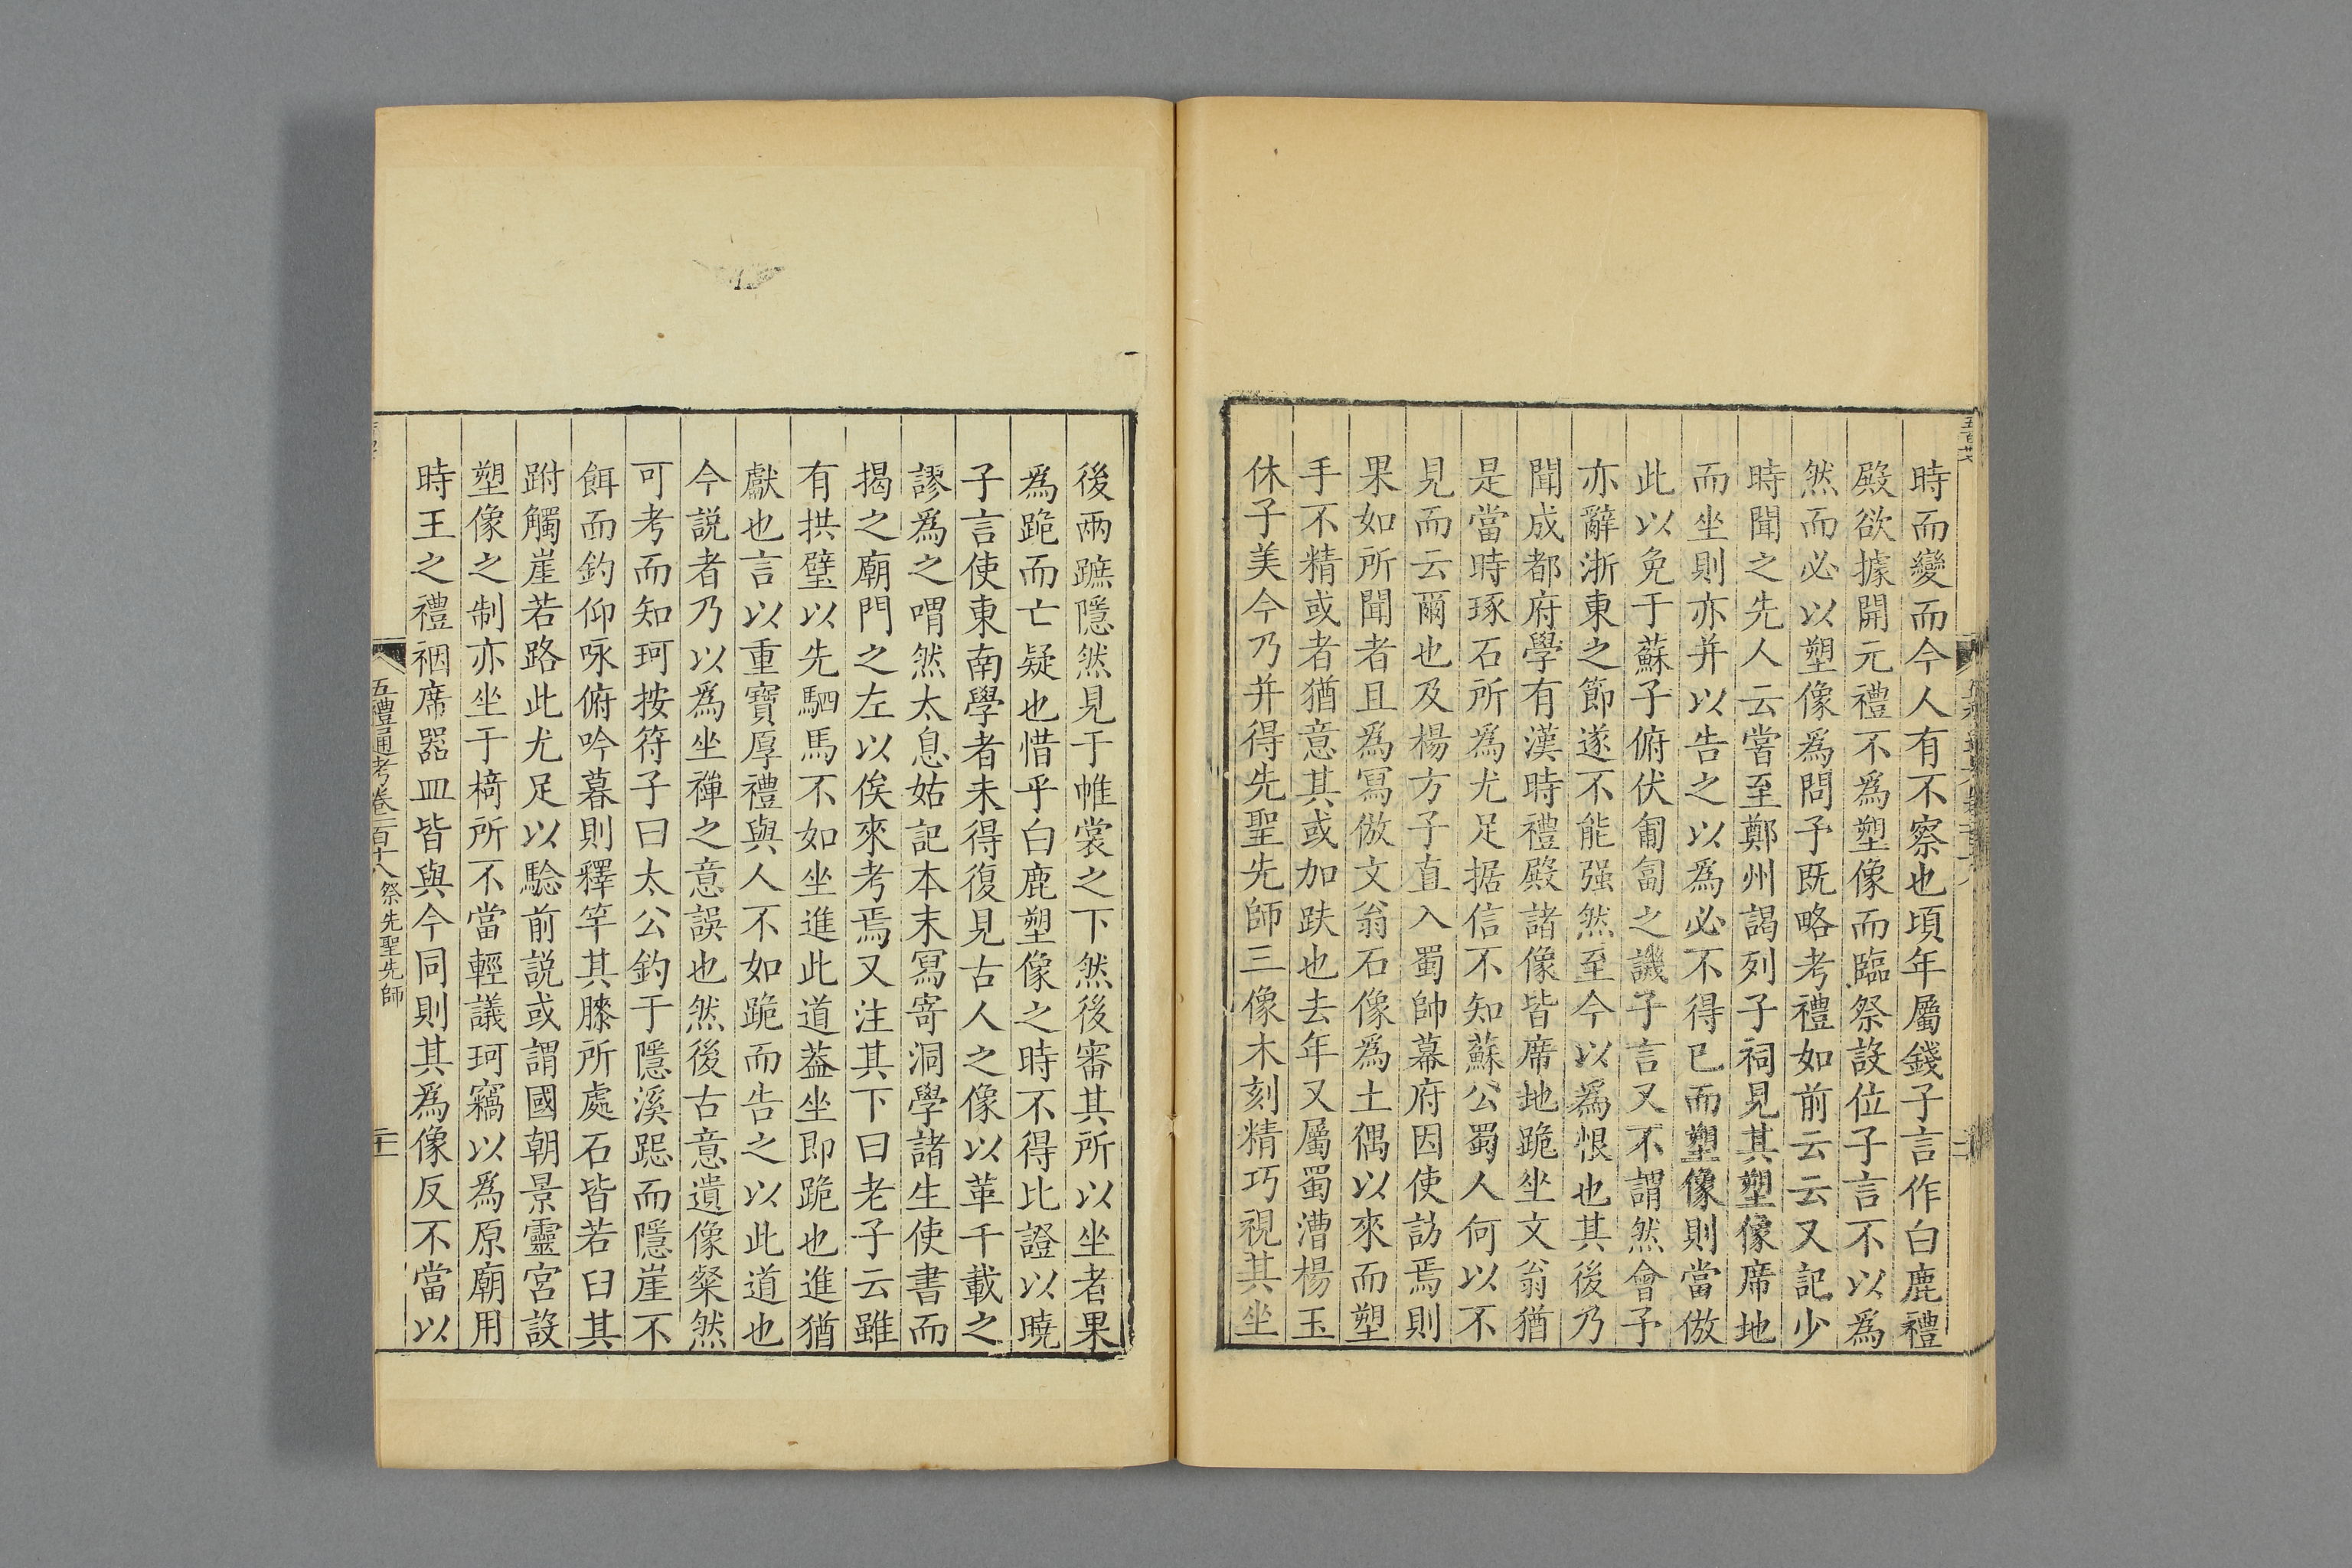 時而變而今人有不察也頃年屬錢子言作白鹿禮
殿欲據開元禮不爲塑像而臨祭設位子言不以爲
然而必以塑像爲問予既略考禮如前云云又記少
時聞之先人云嘗至鄭州謁列子祠見其塑像席地
而坐則亦并以告之以爲必不得已而塑像則當倣
此以免于蘇子俯伏匍匐之譏子言又不謂然會予
亦辭浙東之節遂不能强然至今以爲恨也其後乃
聞成都府學有漢時禮殿諸像皆席地跪坐文翁猶
是當時琢石所爲尤足据信不知蘇公蜀人何以不
見而云爾也及楊方子直入蜀帥幕府因使訪焉則
果如所聞者且爲寫倣文翁石像爲土偶以來而塑
手不精或者猶意其或加趺也去年又屬蜀漕楊玉
休子美今乃并得先聖先師三像木刻精巧視其坐
後兩蹠隱然見于帷裳之下然後審其所以坐者果
爲跪而亡疑也惜乎白鹿塑像之時不得比證以曉
子言使東南學者未得復見古人之像以革千載之
謬爲之喟然太息姑記本末寫寄洞學諸生使書而
揭之廟門之左以俟來考焉又注其下曰老子云雖
有拱璧以先駟馬不如坐進此道葢坐即跪也進猶
獻也言以重寶厚禮與人不如跪而告之以此道也
今説者乃以爲坐禪之意誤也然後古意遺像粲然
可考而知珂按符子曰太公釣于隱溪跽而隱崖不
餌而釣仰咏俯吟暮則釋竿其膝所處石皆若臼其
跗觸崖若路此尤足以騐前説或謂國朝景靈宮設
塑像之制亦坐于椅所不當輕議珂竊以爲原廟用
時王之禮裀席器皿皆與今同則其爲像反不當以
五禮通考卷一百十八 祭先聖先師